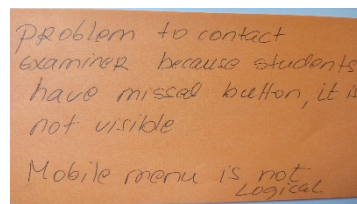 Problem to contact
examiner because students
have missed button, it is
not visible
Mobile menu is not
Logical